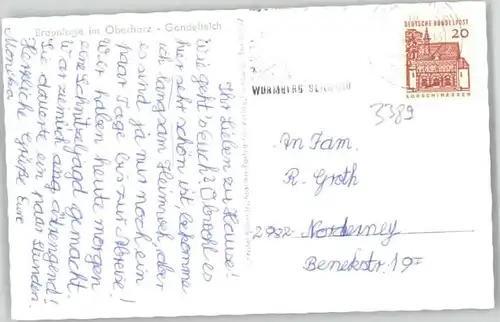 Braunlage im Oberharz - Gondelteich
Ihr Lieben zu Hause!
Wie geht's Euch? Obwohl es
hier sehr schön ist, bekomme
ich langsam Heimweh, aber
es sind ja nur noch ein
paar Tage bis zur Abreise!
Wir haben heute morgen
eine Schnitzeljagd gemacht.
War ziemlich anstrengend!
Sie dauerte ein paar Stunden.
Herzliche Grüße Eure
Monika
WURMBERG
DEUTSCHE BUNDESPOST
20
LORSCH/HESSEN
3389
An Fam.
R. Groth
2982 Norderney
Benekestr. 19